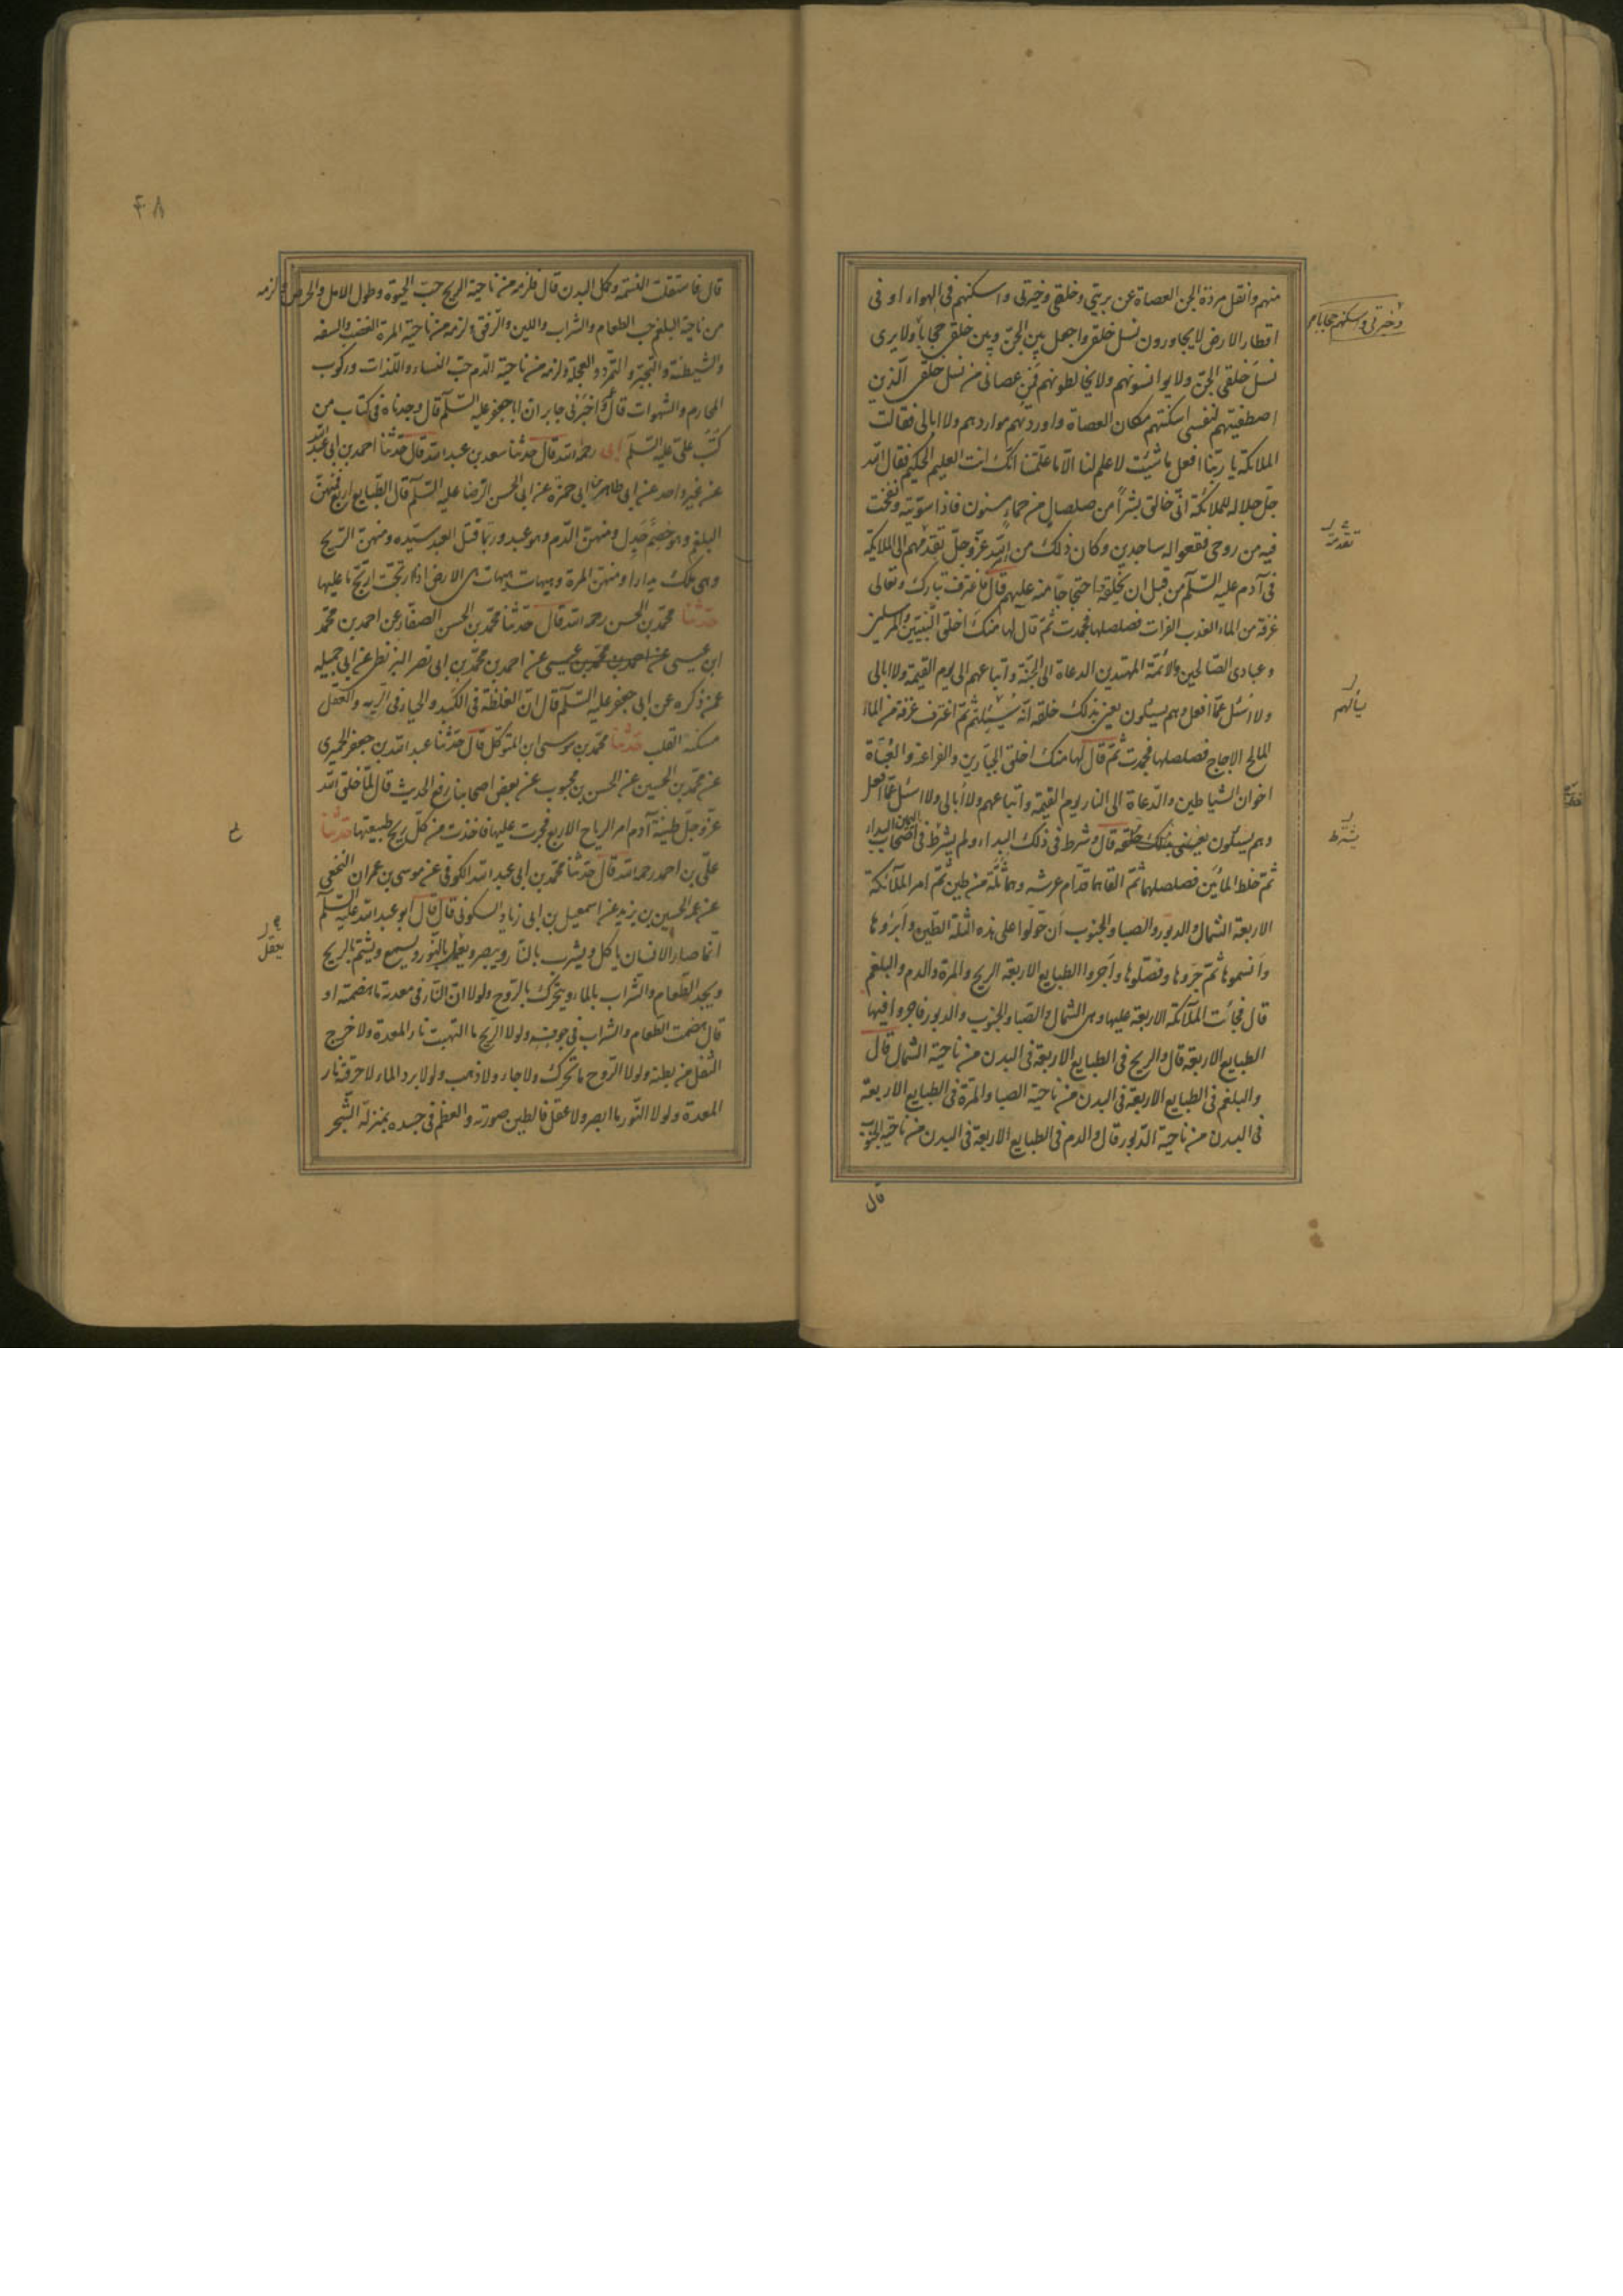 منهم وانقل مردة الجن العصاة عن بريتي وخلقي وخيرتي واسكنهم في الهواء او في
اقطار الارض لا يجاورون نسل خلقي واجعل بين الجن وبين خلقي حجابا ولا يرى
نسل خلقي الجن ولا يوانسونهم ولا يخالطونهم فمن عصاني من نسل خلقي الذين
اصطفيتهم لنفسي اسكنتهم مساكن العصاة واوردتهم مواردهم ولا ابالي فقالت
الملائكة يا ربنا افعل ما شئت لا علم لنا الا ما علمتنا انك انت العليم الحكيم فقال الله
جل جلاله للملائكة اني خالق بشرا من صلصال من حماء مسنون فاذا سويته ونفخت
فيه من روحي فقعوا له ساجدين وكان ذلك من الله عز وجل تقدمهم الى الملائكة
في آدم عليه السلام من قبل ان يخلقه واحتجاجا منه عليهم قال فاغترف تبارك وتعالى
غرفة من الماء العذب الفرات فصلصلها فجمدت ثم قال لها منك اخلق النبيين والمرسلين
وعبادي الصالحين والائمة المهتدين الدعاة الى الجنة واتباعهم الى يوم القيمة ولا ابالي
ولا اسئل عما افعل وهم يسئلون يعني بذلك خلقه انه سيسئلهم ثم اغترف غرفة من الماء
المالح الاجاج فصلصلها فجمدت ثم قال لها منك اخلق الجبارين والفراعنة والعتاة
اخوان الشياطين والدعاة الى النار يوم القيمة واتباعهم ولا ابالي ولا اسئل عما افعل
وهم يسئلون يعني بذلك خلقه قال وشرط في ذلك البداء ولم يشرط في اصحاب اليمين البداء
ثم خلط المائين فصلصلهما ثم القاهما قدام عرشه وهما ثلة من طين ثم امر الملائكة
الاربعة الشمال والدبور والصبا والجنوب ان جولوا على هذه الثلة الطين وابرؤها
وانسموها ثم جزوها وفصلوها واجروا الطبايع الاربعة الريح والمرة والدم والبلغم
قال فجائت الملائكة الاربعة عليها وهي الشمال والصبا والجنوب والدبور فاجروا فيها
الطبايع الاربعة قال والريح في الطبايع الاربعة في البدن من ناحية الشمال قال
والبلغم في الطبايع الاربعة في البدن من ناحية الصبا والمرة في الطبايع الاربعة
في البدن من ناحية الدبور قال والدم في الطبايع الاربعة في البدن من ناحية الجنوب
قال
وخيرتي واسكنهم حجابا
تقدمة
يسألهم
يشترط
۴۸
قال فاستقلت النسمة وكمل البدن قال فلزمه من ناحية الريح حب الحيوة وطول الامل والحرص ولزمه
من ناحية البلغم حب الطعام والشراب واللين والرفق ولزمه من ناحية المرة الغضب والسفه
والشيطنة والتجبر والتمرد والعجلة ولزمه من ناحية الدم حب النساء واللذات وركوب
المحارم والشهوات قال واخبرني جابر ان ابا جعفر عليه السلام قال وجدناه في كتاب من
كتب علي عليه السلام ابي رحمه الله قال حدثنا سعد بن عبد الله قال حدثنا احمد بن ابي عبد الله
عن غير واحد عن ابي طاهر بن ابي حمزة عن ابي الحسن الرضا عليه السلام قال الطبايع اربع فمنهن
البلغم وهو خصم جدل ومنهن الدم وهو عبد وربما قتل العبد سيده ومنهن الريح
وهي ملك يدارا ومنهن المرة وهيهات وهيهات هي الارض اذا ارتجت ارتج ما عليها
حدثنا محمد بن الحسن رحمه الله قال حدثنا محمد بن الحسن الصفار عن احمد بن محمد
ابن عيسى عن احمد بن محمد بن عيسى عن احمد بن محمد بن ابي نصر البزنطي عن ابي جميله
عمن ذكره عن ابي جعفر عليه السلام قال ان الغلظة في الكبد والحياء في الريه والعقل
مسكنه القلب حدثنا محمد بن موسى ابن المتوكل قال حدثنا عبد الله بن جعفر الحميري
عن محمد بن الحسين عن الحسن بن محبوب عن بعض اصحابنا رفع الحديث قال لما خلق الله
عز وجل طينة آدم امر الرياح الاربع فجرت عليها فاخذت من كل ريح طبيعتها حدثنا
علي بن احمد رحمه الله قال حدثنا محمد بن ابي عبد الله الكوفي عن موسى بن عمران النخعي
عن عمه الحسين بن يزيد عن اسمعيل بن ابي زياد السكوني قال قال ابو عبد الله عليه السلام
انما صار الانسان ياكل ويشرب بالنار ويبصر ويعمل بالنور ويسمع ويشتم بالريح
ويجد الطعام والشراب بالماء ويتحرك بالروح ولولا ان النار في معدته ما هضمته او
قال هضمت الطعام والشراب في جوفه ولولا الريح ما التهبت نار المعدة ولا خرج
الثفل من بطنه ولولا الروح ما تحرك ولا جاء ولا ذهب ولولا برد الماء لاحرقته نار
المعدة ولولا النور ما ابصر ولا عقل فالطين صورته والعظم في جسده بمنزلة الشجر
يعقل